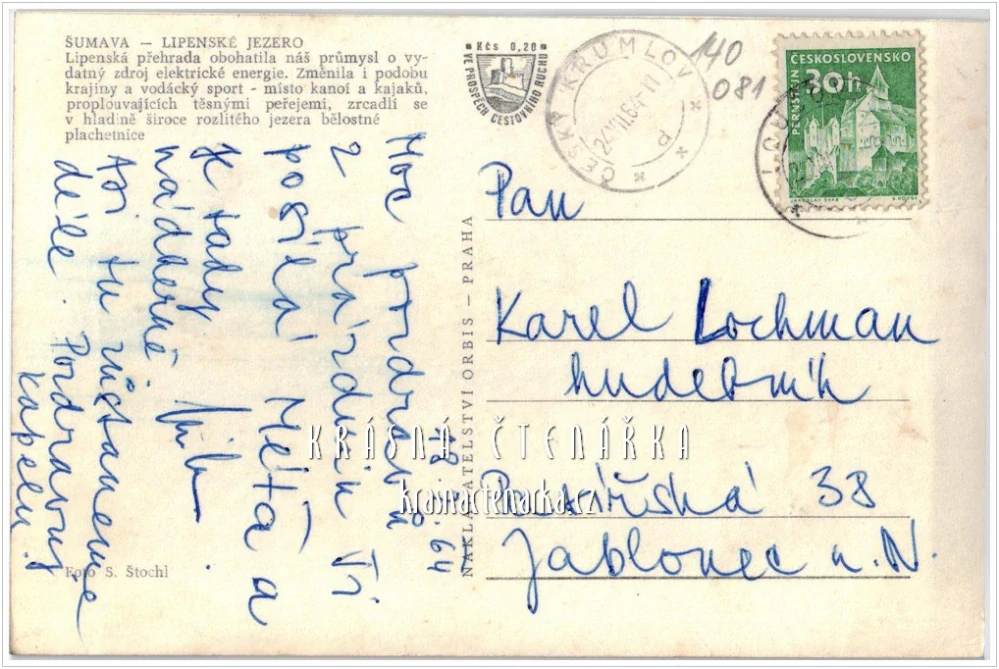 ŠUMAVA — LIPENSKÉ JEZERO
Lipenská přehrada obohatila náš průmysl o vy-
datný zdroj elektrické energie. Změnila i podobu
krajiny a vodácký sport - místo kanoí a kajaků,
proplouvajících těsnými peřejemi, zrcadlí se
v hladině široce rozlitého jezera bělostné
plachetnice
Kčs 0,20
VE PROSPĚCH CESTOVNÍHO RUCHU
ČESKÝ KRUMLOV
140
081
ČESKOSLOVENSKO
30h
PERNŠTEJN
18.7.64
Moc pozdravů
z prázdnin Ti
posílá Méťa a
Je tady
nádherně
Asi tu zůstaneme
déle. Pozdravuj
kapelu.
NAKLADATELSTVÍ ORBIS — PRAHA
Foto S. Štochl
Pan
Karel Lochman
hudebník
38
Jablonec n. N.
KRÁSNÁ ČTENÁŘKA
krasnactenarka.cz